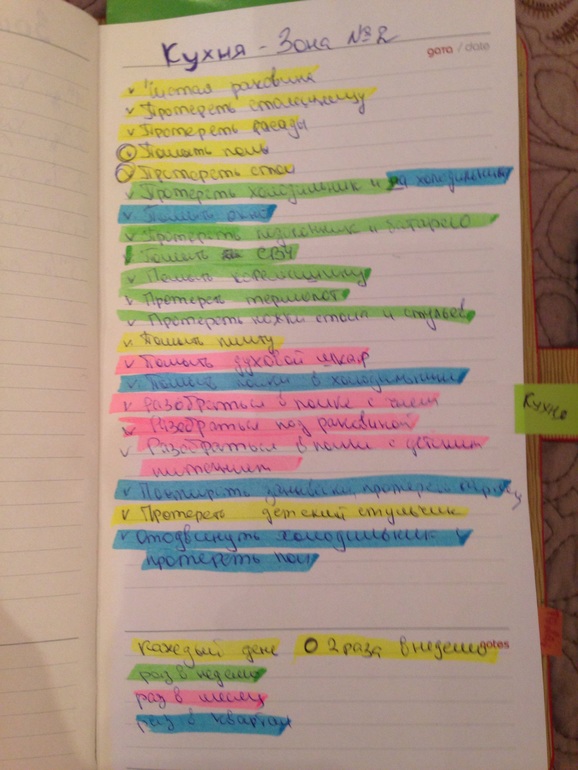 Кухня - Зона №2
дата / date
Чистая раковина
Протереть столешницу
Протереть фасады
Помыть полы
Протереть стол
Протереть холодильник и на холодильнике
Помыть окно
Протереть подоконник и батарею
Помыть СВЧ
Помыть кофемашинку
Протереть термопот
Протереть ножки стола и стульев
Помыть плиту
Помыть духовой шкаф
Помыть полки в холодильнике
Разобраться в полке с чаем
Разобраться под раковиной
Разобраться в полке с детским
питанием
Постирать занавески, протереть
Протереть детский стульчик
Отодвинуть холодильник и
протереть пол
Кухня
каждый день О 2 раза в неделю
раз в неделю
раз в месяц
раз в квартал